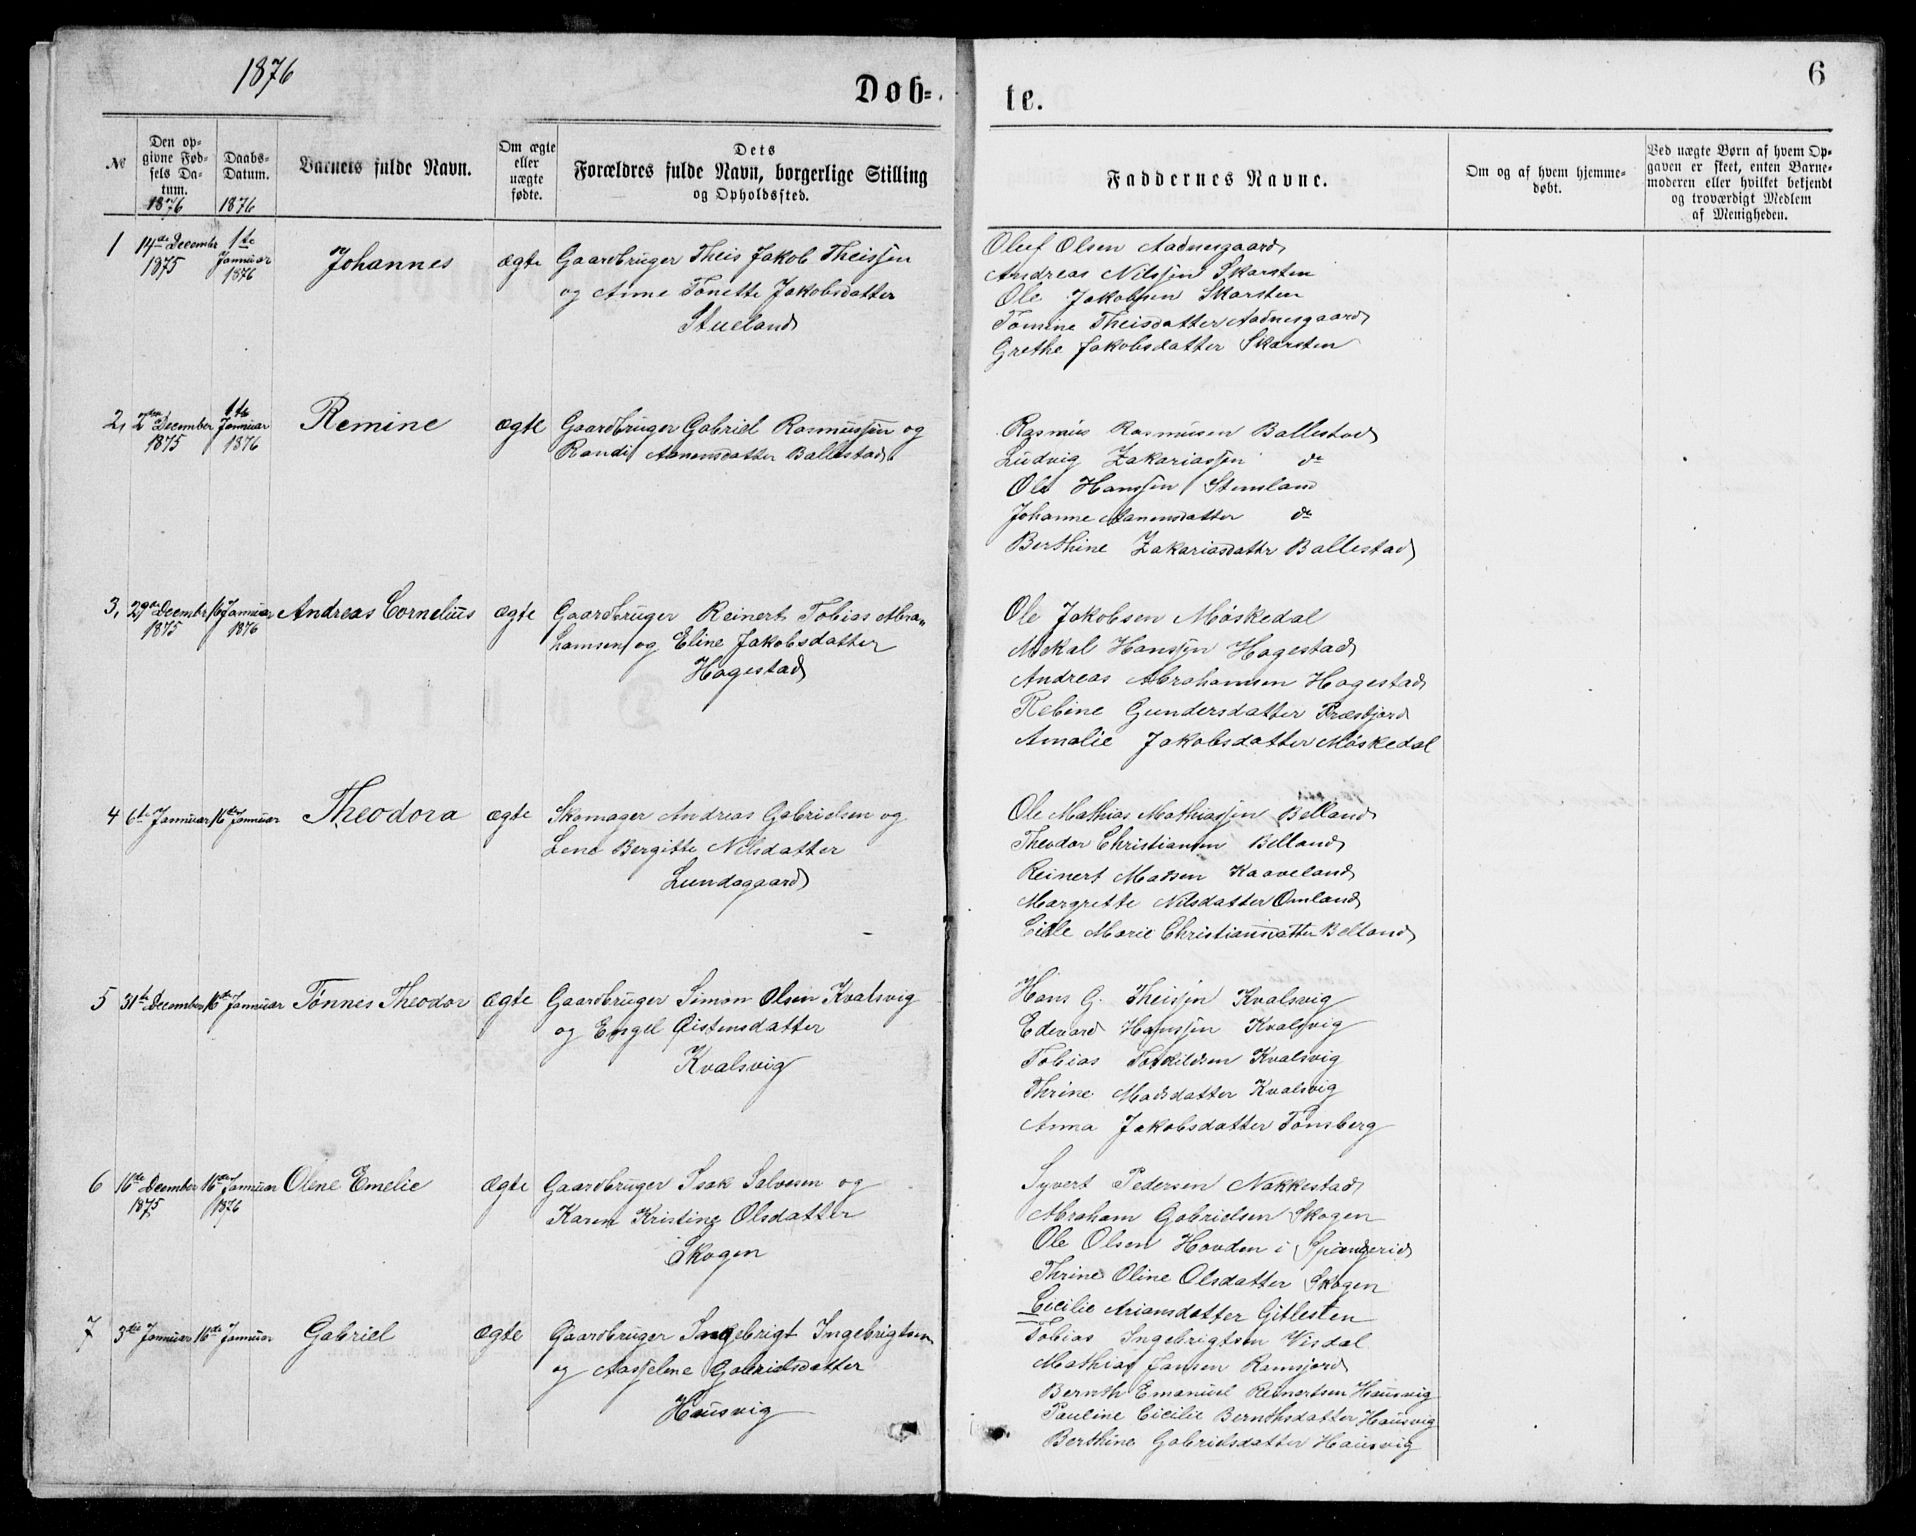 1876
Døb=
te.
6
No
Den op-
givne Fød-
sels Da-
tum.
1876
Daabs-
Datum.
1876
Barnets fulde Navn.
Om ægte
eller
uægte
fødte.
Dets
Forældres fulde Navn, borgerlige Stilling
og Opholdssted.
Faddernes Navne.
Om og af hvem hjemme-
døbt.
Ved uægte Børn af hvem Op-
gaven er skeet, enten Barne-
moderen eller hvilket bekjendt
og troværdigt Medlem
af Menigheden.
1
14de Decembr
1875
1te
Januar
1876
Johannes
ægte
Gaardbruger Theis Jakob Theissen
og Anne Tonette Jakobsdatter
Stueland
Oluf Olsen Aadnesgaard
Andreas Nilssen Skarsten
Ole Jakobsen Skarsten
Tomine Theisdatter Aadnesgaard
Grethe Jakobsdatter Skarsten
2,
2den December
1875
1te
Januar
1876
Remine
ægte
Gaardbruger Gabriel Rasmussen og
Randi Aanensdatter Ballestad
Rasmus Rasmusen Ballestad
Ludvig Zakariassen do
Ole Hanssen
Johanne Aanensdatter do
Berthine Zakariasdattr Ballestad
3,
29de Decembr
1875
16 Januar
1876
Andreas Cornelius
ægte
Gaardbruger Reinert Tobias Abra„
hamsen og Eline Jakobsdatter
Hagestad
Ole Jakobsen Møskedal
Mekal Hanssen Hagestad
Andreas Abrahamsen Hagestad
Rebine Gundersdatter
Amalie Jakobsdatter Møskedal
4
6te Januar
16de Januar
Theodora
ægte
Skomager Andreas Gabrielsen og
Lene Bergitte Nilsdatter
Lundagaard
Ole Mathias Mathiassen Belland
Theodor Christiansen Belland
Reinert Madsen Kaaveland
Margrette Nilsdatter Omland
Marie Christiansdatter Belland
5
31te December
16de Januar
Tønnes Theodor
ægte
Gaardbruger Simon Olsen Kvalsvig
og Engel Øistensdatter
Kvalsvig
Hans G. Theissen Kvalsvig
Edevard Hanssen Kvalsvig
Tobias Torkildsen Kvalsvig
Thrine Madsdatter Kvalsvig
Anna Jakobsdatter Tonsberg
6
16de December
1875
16de Januar
1876
Olene Emelie
ægte
Gaardbruger Isak Salvesen og
Karen Kristine Olsdatter
Skogen
Syvert Pedersen Nakkestad
Abraham Gabrielsen Skogen
Ole Olsen Hovden i Spangerid
Thrine Oline Olsdatter Skogen
Cicilie Ariansdatter Gitlesten
7
3die Januar
16de Januar
Gabriel
ægte
Gaardbruger Ingebrigt Ingebrigtsen
og Aasjelene Gabrielsdatter
Hausvig
Tobias Ingebrigtsen Visdal
Mathias Jansen Ramsjord
Bernth Emanuel Reinertsen Hausvig
Pauline Cicilie Bernthsdatter Hausvig
Berthine Gabrielsdatter Hausvig